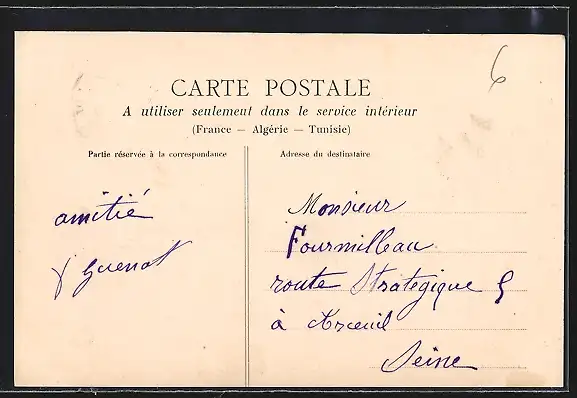 6
CARTE POSTALE
A utiliser seulement dans le service intérieur
(France — Algérie — Tunisie)
Partie réservée à la correspondance
Adresse du destinataire
amitié
Guenot
Monsieur
Fourmilleau
route Stratégique 5
à Arceuil
Seine